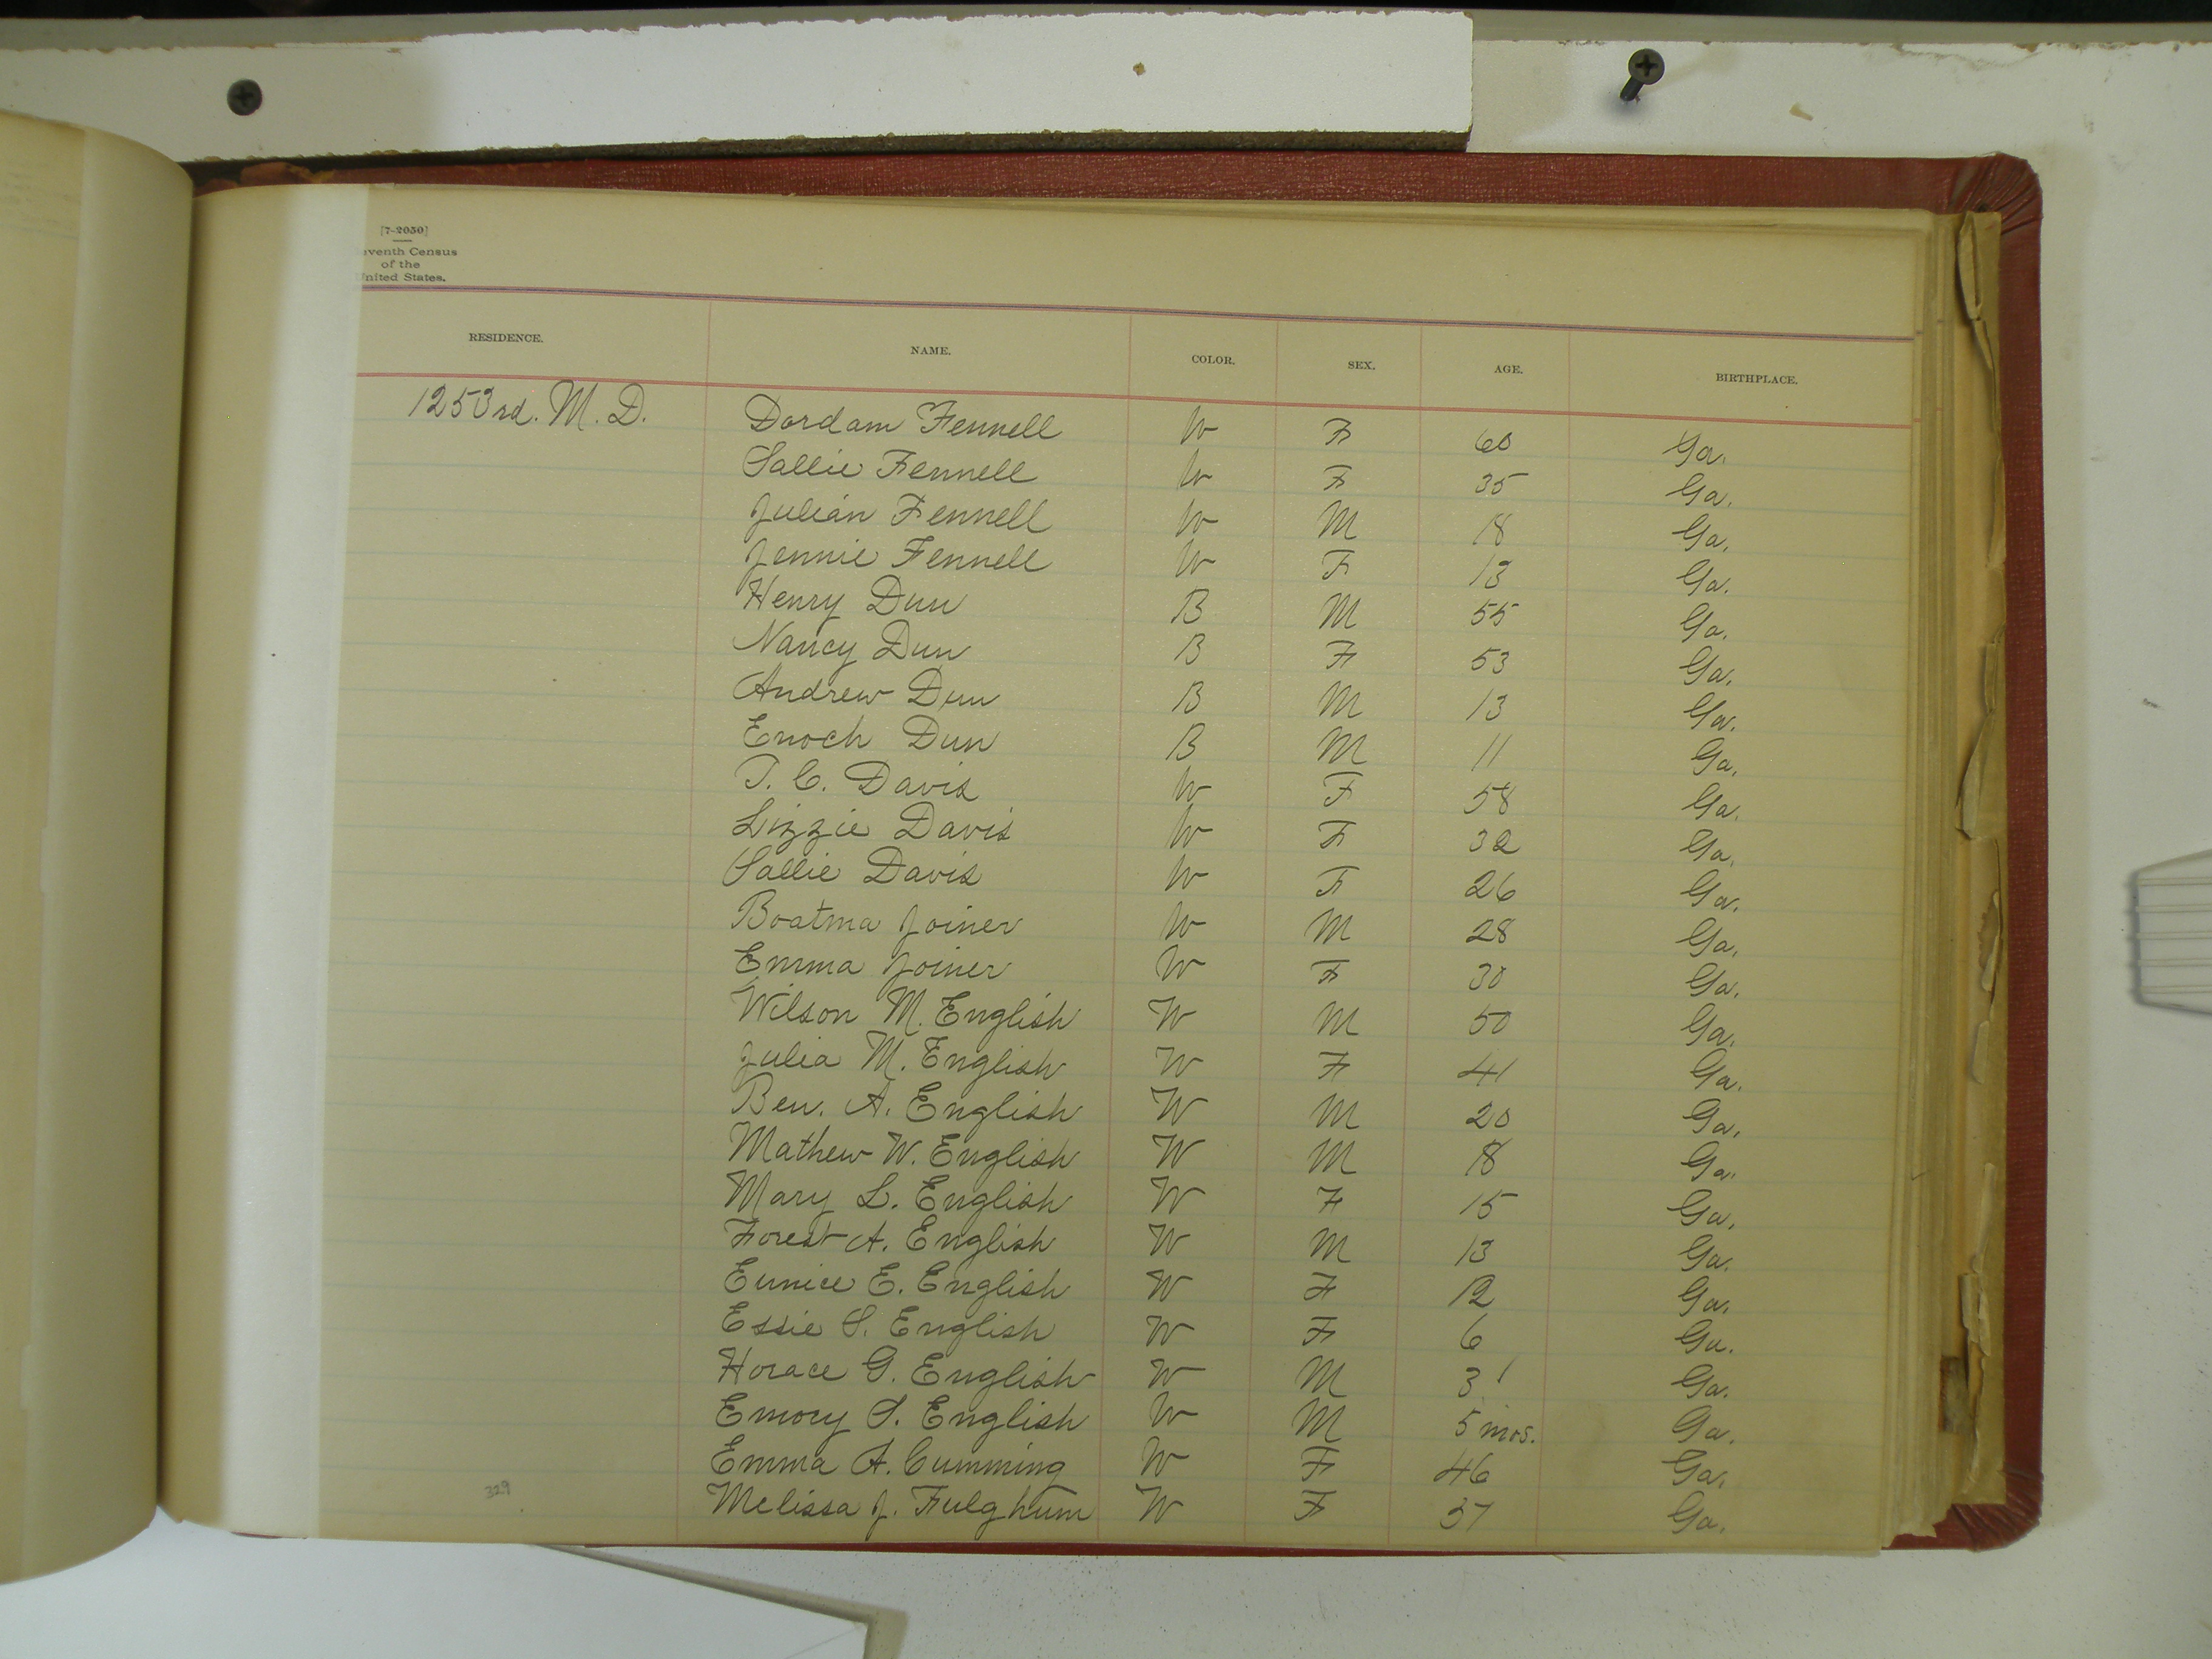 [7-2050]
eventh Census
of the
United States.
RESIDENCE. NAME. COLOR. SEX. AGE. BIRTHPLACE.
1253rd. M. D. Dordam Fennell W F 60 Ga.
Sallie Fennell W F 35 Ga.
Julian Fennell W M 18 Ga.
Jennie Fennell W F 13 Ga.
Henry Dun B M 55 Ga.
Nancy Dun B F 53 Ga.
Andrew Dun B M 13 Ga.
Enoch Dun B M 11 Ga.
T. C. Davis W F 58 Ga.
Lizzie Davis W F 32 Ga.
Sallie Davis W F 26 Ga.
Boatma Joiner W M 28 Ga.
Emma Joiner W F 30 Ga.
Wilson M. English W M 50 Ga.
Julia M. English W F 41 Ga.
Ben. A. English W M 20 Ga.
Mathew W. English W M 18 Ga.
Mary L. English W F 15 Ga.
Forest A. English W M 13 Ga.
Eunice E. English W F 12 Ga.
Essie S. English W F 6 Ga.
Horace G. English W M 3 Ga.
Emory S. English W M 5 mos. Ga.
Emma A. Cumming W F 46 Ga.
329 Melissa J. Fulghum W F 37 Ga.